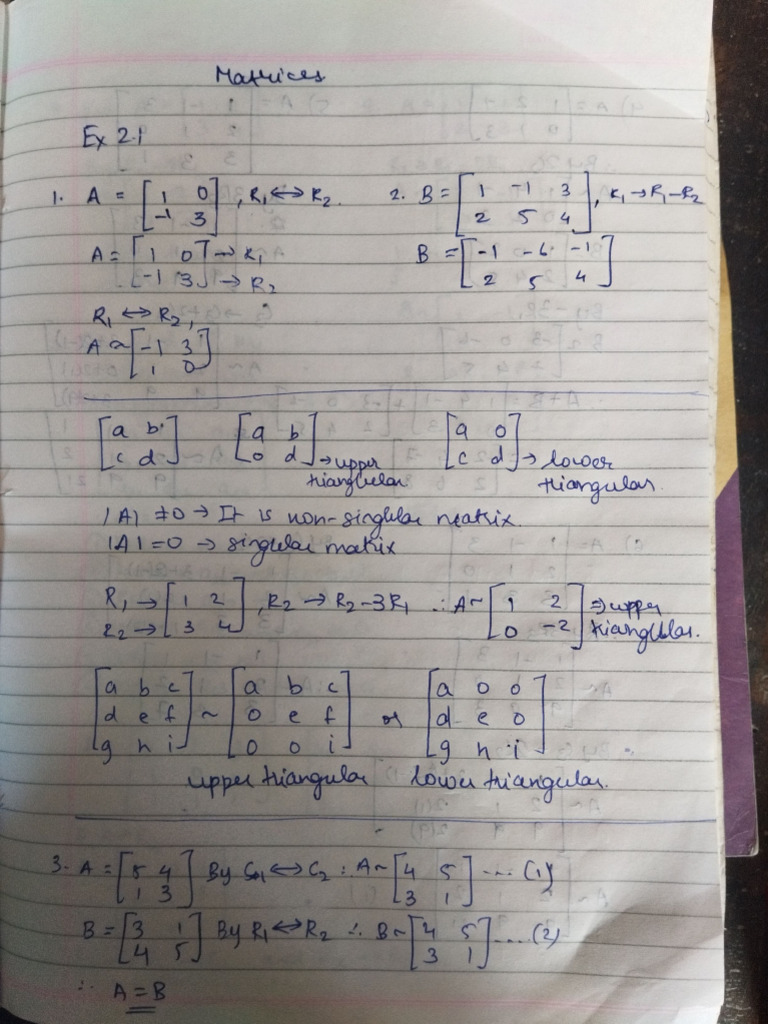 Matrices
Ex 2.1
1. A = [1 0
-1 3], R₁ ↔ R₂
A = [1 0] → R₁
[-1 3] → R₂
R₁ ↔ R₂,
A ~ [-1 3
1 0]
2. B = [1 -1 3
2 5 4], R₁ → R₁-R₂
B = [-1 -6 -1
2 5 4]
[a b
c d]
[a b
0 d] → upper
triangular
[a 0
c d] → lower
triangular.
|A| ≠ 0 → It is non-singular matrix.
|A| = 0 → singular matrix
R₁ → [1 2
R₂ → 3 4], R₂ → R₂-3R₁ ∴ A ~ [1 2
0 -2] ⇒ upper
triangular.
[a b c
d e f
g h i] ~ [a b c
0 e f
0 0 i] or [a 0 0
d e 0
g h i]
upper triangular lower triangular.
3. A = [5 4
1 3] By C₁ ↔ C₂ : A ~ [4 5
3 1] .... (1)
B = [3 1
4 5] By R₁ ↔ R₂ ∴ B ~ [4 5
3 1] .... (2)
∴ A = B